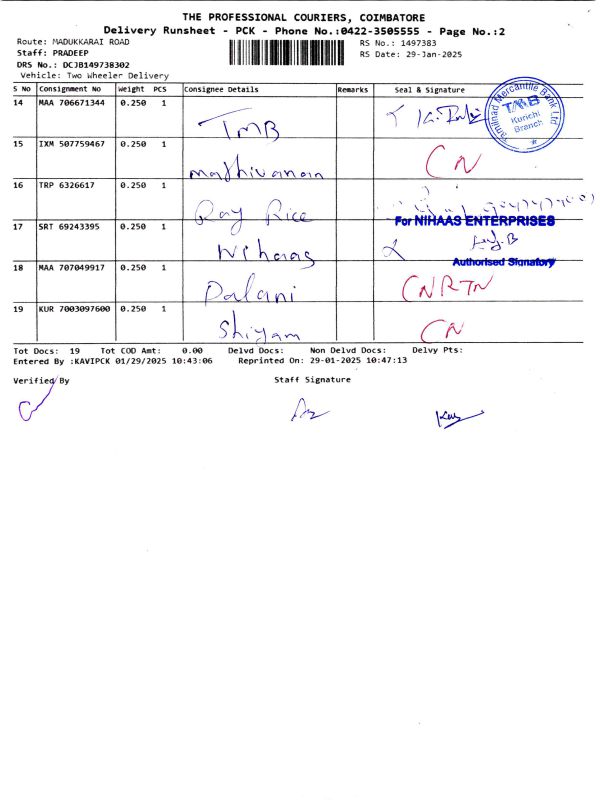 THE PROFESSIONAL COURIERS, COIMBATORE
Delivery Runsheet - PCK - Phone No.:0422-3505555 - Page No.:2
Route: MADUKKARAI ROAD RS No.: 1497383
Staff: PRADEEP RS Date: 29-Jan-2025
DRS No.: DCJB149738302
Vehicle: Two Wheeler Delivery
S No Consignment No Weight PCS Consignee Details Remarks Seal & Signature
14 MAA 706671344 0.250 1 TMB
Tamilnad Mercantile Bank Ltd
TMB
Kurichi
Branch
15 IXM 507759467 0.250 1 Mathivanan CN
16 TRP 6326617 0.250 1 Ray Rice
17 SRT 69243395 0.250 1 Nihaas
For NIHAAS ENTERPRISES
Authorised Signatory
18 MAA 707049917 0.250 1 Palani CNRTN
19 KUR 7003097600 0.250 1 Shiyam CN
Tot Docs: 19 Tot COD Amt: 0.00 Delvd Docs: Non Delvd Docs: Delvy Pts:
Entered By :KAVIPCK 01/29/2025 10:43:06 Reprinted On: 29-01-2025 10:47:13
Verified By Staff Signature